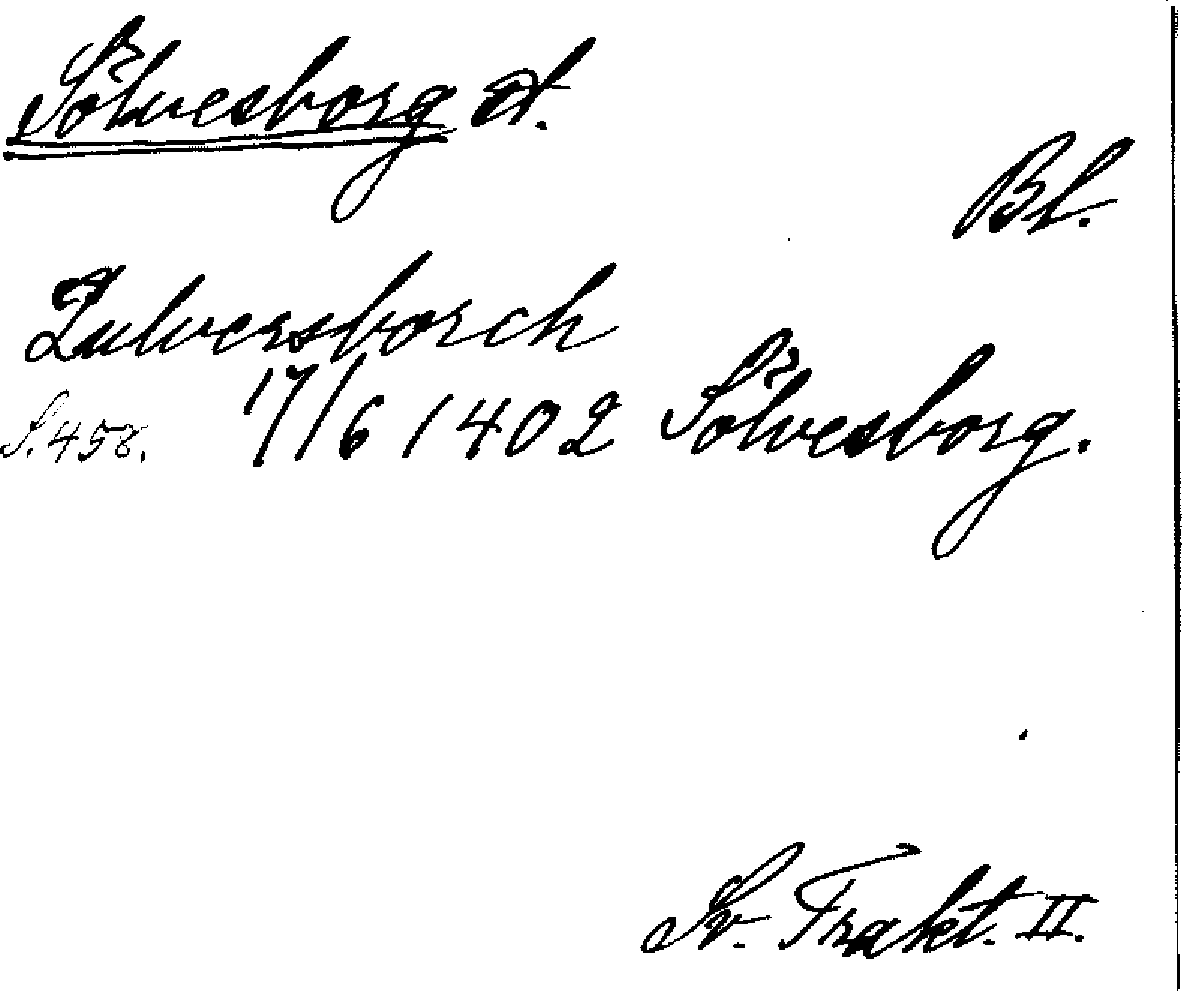 Sölvesborg st.
Bl.
Zulversborch
S. 458. 17/6 1402 Sölvesborg.
Sv. Trakt. II.